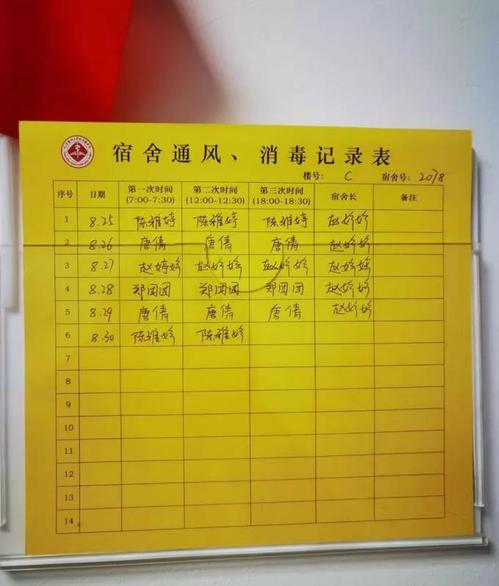 宿舍通风、消毒记录表
楼号: C 宿舍号: 2078
序号 日期 第一次时间 (7:00-7:30) 第二次时间 (12:00-12:30) 第三次时间 (18:00-18:30) 宿舍长 备注
1 8.25 陈雅婷 陈雅婷 陈雅婷 赵婷婷
2 8.26 唐倩 唐倩 唐倩 赵婷婷
3 8.27 赵婷婷 赵婷婷 赵婷婷 赵婷婷
4 8.28 郑团团 郑团团 郑团团 赵婷婷
5 8.29 唐倩 唐倩 唐倩 赵婷婷
6 8.30 陈雅婷 陈雅婷
7
8
9
10
11
12
13
14